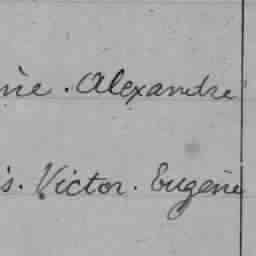 nie. Alexandre
s. Victor. Eugène